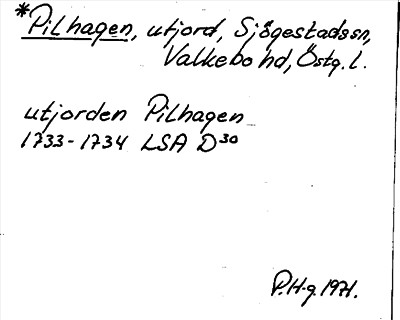 *Pilhagen, utjord, Sjögestadssn,
Valkebo hd, Östg. l.
utjorden Pilhagen
1733-1734 LSA D30
P.H-g. 1971.